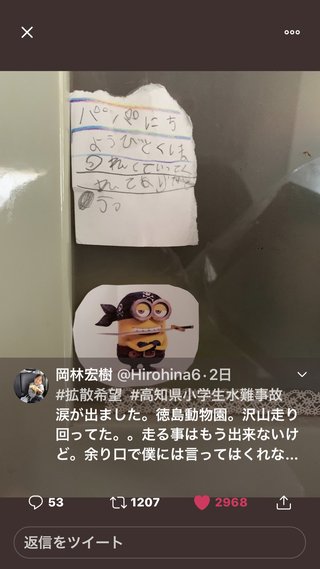 パパにち
ようびとくしま
れていってく
れてありがと
う。
岡林宏樹 @Hirohina6・2日
#拡散希望 #高知県小学生水難事故
涙が出ました。徳島動物園。沢山走り
回ってた。。走る事はもう出来ないけ
ど。余り口で僕には言ってはくれな...
53 1207 2968
返信をツイート